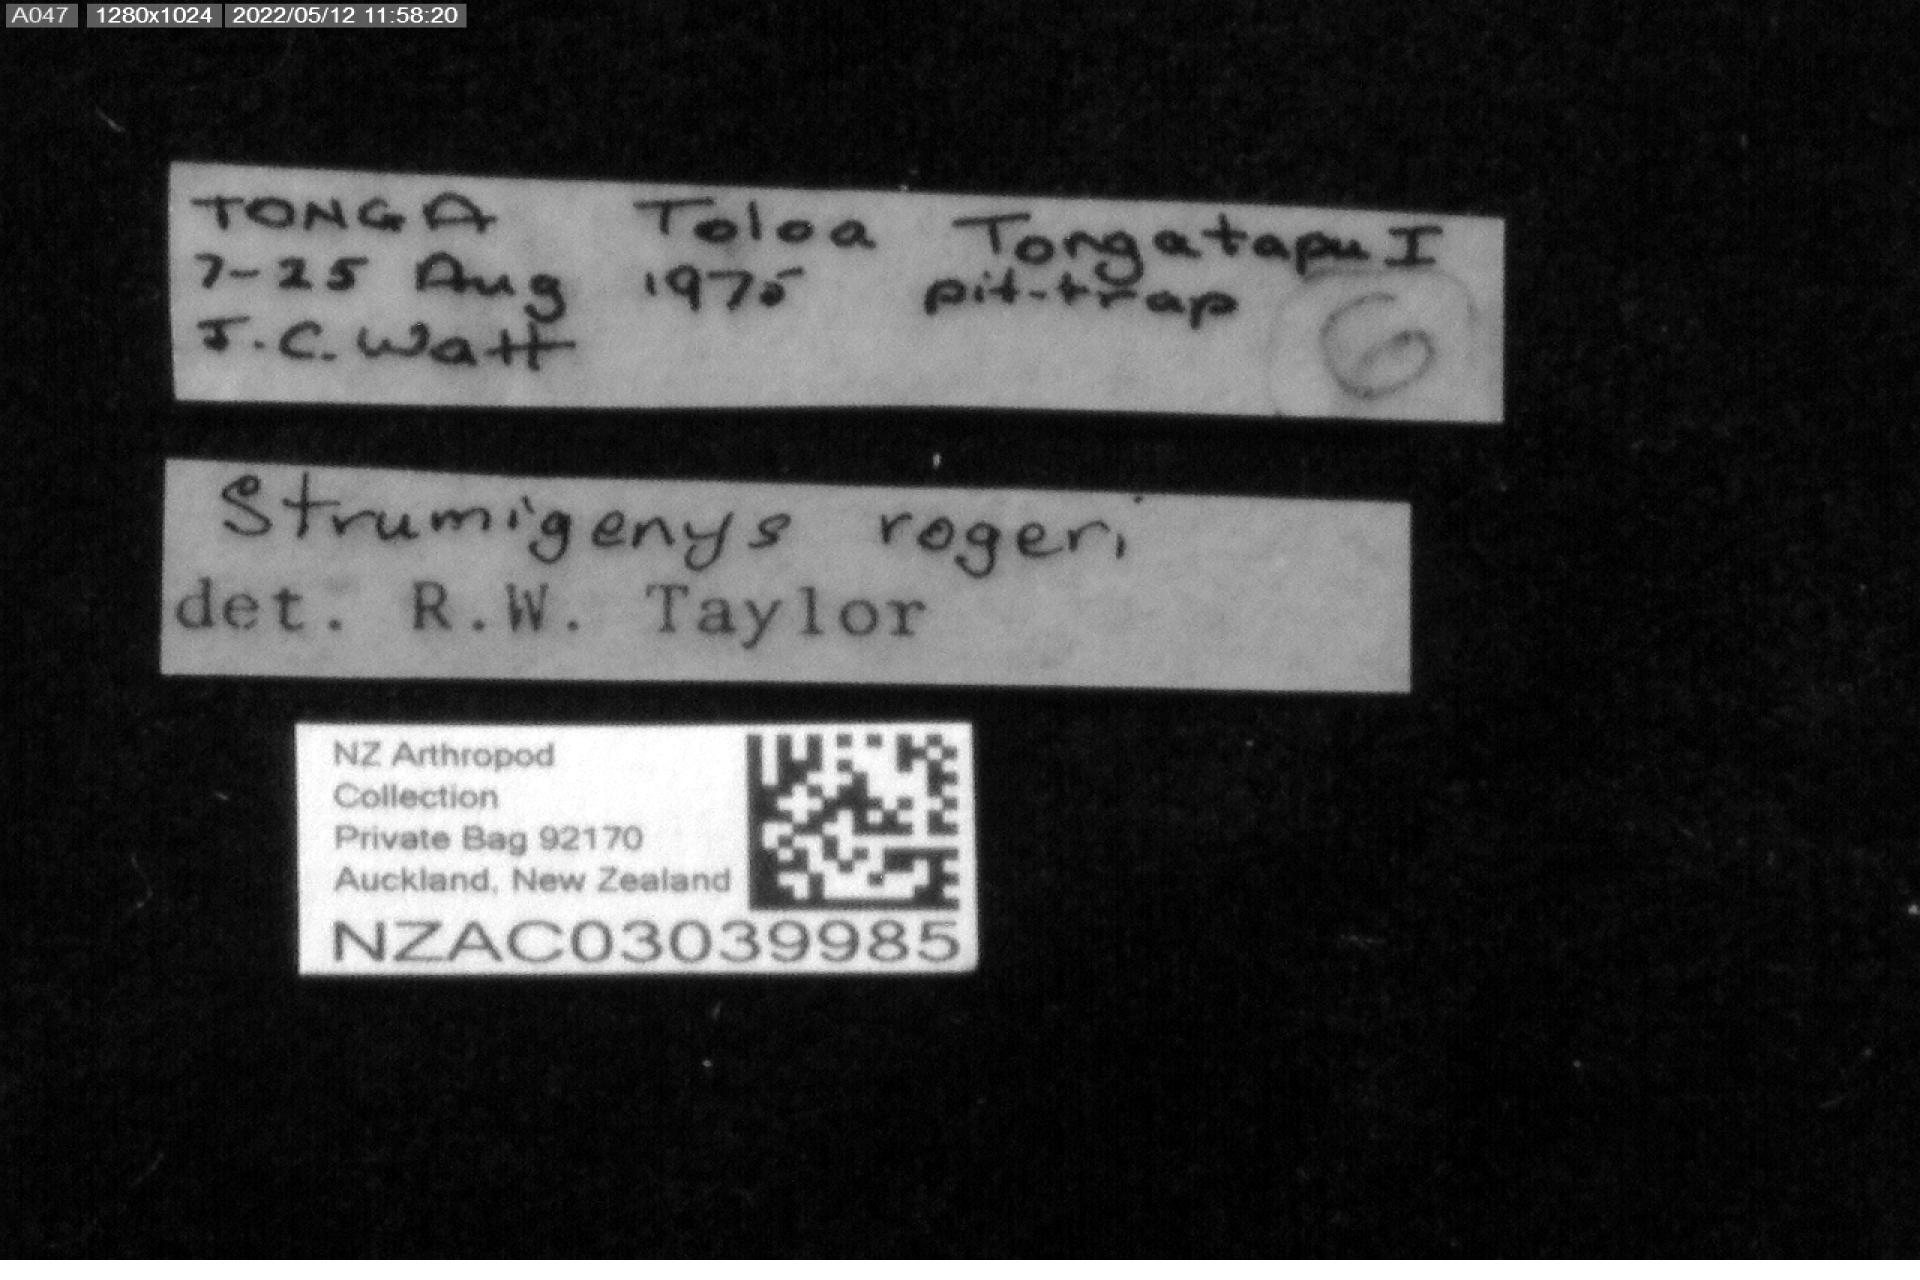 A047 1280x1024 2022/05/12 11:58:20
TONGA Toloa Tongatapu I
7-25 Aug 1975 pit-trap
J.C. Watt
6
Strumigenys rogeri
det. R.W. Taylor
NZ Arthropod
Collection
Private Bag 92170
Auckland, New Zealand
NZAC03039985